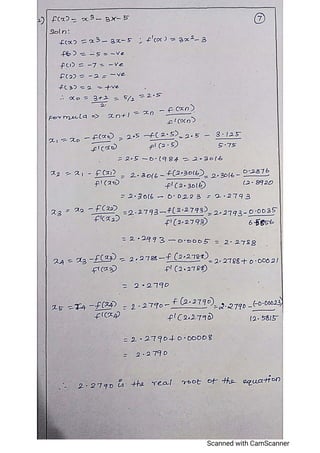 2) f(x) = x³ - 3x - 5 ⑦
Soln:
f(x) = x³ - 3x - 5 ; f'(x) = 3x² - 3
f(0) = -5 = -ve
f(1) = -7 = -ve
f(2) = -2 = -ve
f(3) = 2 = +ve
∴ x₀ = 3+2/2 = 5/2 = 2.5
formula ⇒ xn+1 = xn - f(xn)/f'(xn)
x₁ = x₀ - f(x₀)/f'(x₀) = 2.5 - f(2.5)/f'(2.5) = 2.5 - 3.125/5.75
= 2.5 - 0.1984 = 2.3016
x₂ = x₁ - f(x₁)/f'(x₁) = 2.3016 - f(2.3016)/f'(2.3016) = 2.3016 - 0.2876/12.8920
= 2.3016 - 0.0223 = 2.2793
x₃ = x₂ - f(x₂)/f'(x₂) = 2.2793 - f(2.2793)/f'(2.2793) = 2.2793 - 0.0035
= 2.2993 - 0.0005 = 2.2788
x₄ = x₃ - f(x₃)/f'(x₃) = 2.2788 - f(2.2788)/f'(2.2788) = 2.2788 + 0.00021
= 2.2790
x₅ = x₄ - f(x₄)/f'(x₄) = 2.2790 - f(2.2790)/f'(2.2790) = 2.2790 - (-0.00023)/12.5815
= 2.2790 + 0.00008
= 2.2790
∴ 2.2790 is the real root of the equation
Scanned with CamScanner